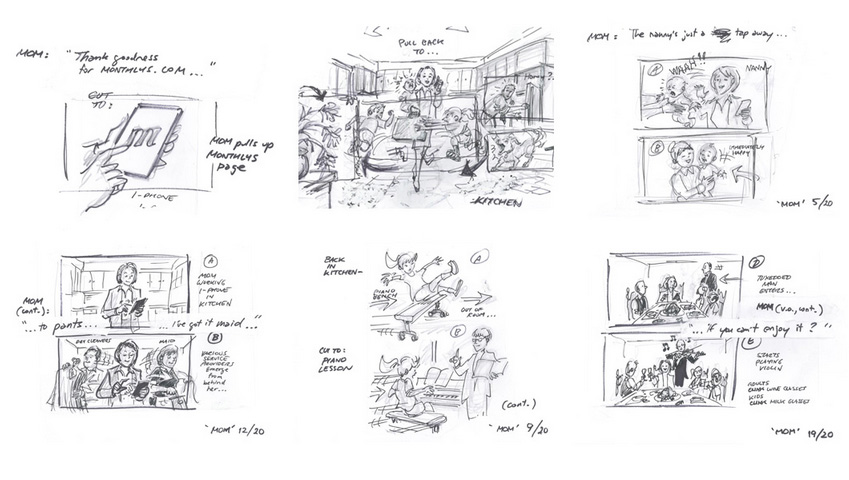 MOM: "Thank goodness
for MONTHLYS.COM..."
CUT
TO:
m
MOM pulls up
MONTHLYS
page
I-PHONE
PULL BACK
TO...
KITCHEN
MOM: The nanny's just a tap away...
A
WAAH!!
NANNY
B
IMMEDIATELY
HAPPY
'MOM' 5/20
A
MOM
WORKING
I-PHONE
IN
KITCHEN
MOM
(cont.):
"...to pants... ...I've got it maid..."
DRY CLEANERS
MAID
B
VARIOUS
SERVICE
PROVIDERS
Emerge
from
behind
her...
'MOM' 12/20
BACK
IN
KITCHEN-
A
PIANO
BENCH
OUT OF
ROOM...
CUT TO:
PIANO
LESSON
B
(cont.)
'MOM' 9/20
D
TUXEDOED
MAN
ENTERS...
MOM (V.O., cont.)
"...if you can't enjoy it?"
E
STARTS
PLAYING
VIOLIN
ADULTS
CLINK WINE GLASSES
KIDS
CLINK MILK GLASSES
'MOM' 19/20